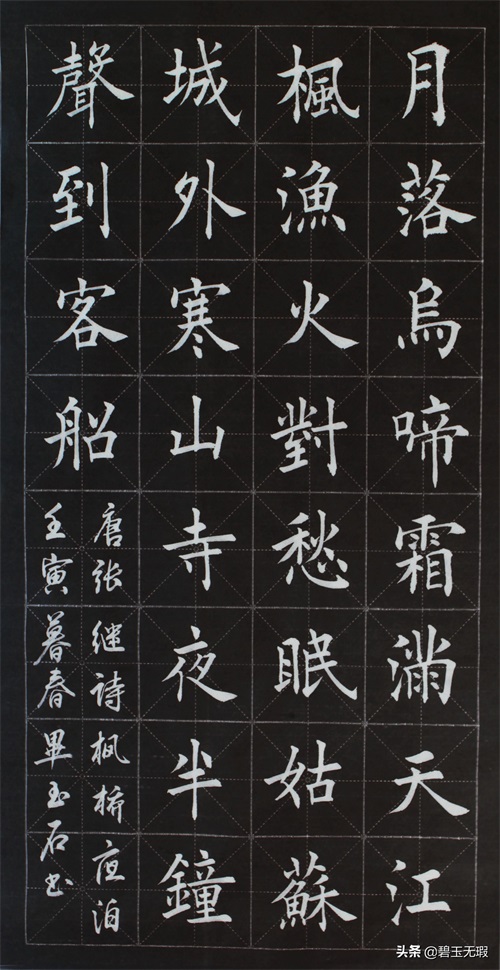 月落烏啼霜滿天江
楓漁火對愁眠姑蘇
城外寒山寺夜半鐘
聲到客船
唐张继诗枫桥夜泊
壬寅暮春畢玉石书
头条 @碧玉无瑕